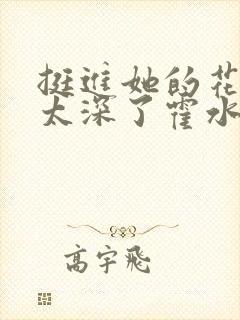 挺进她的花
太深了霍水
高宇飛